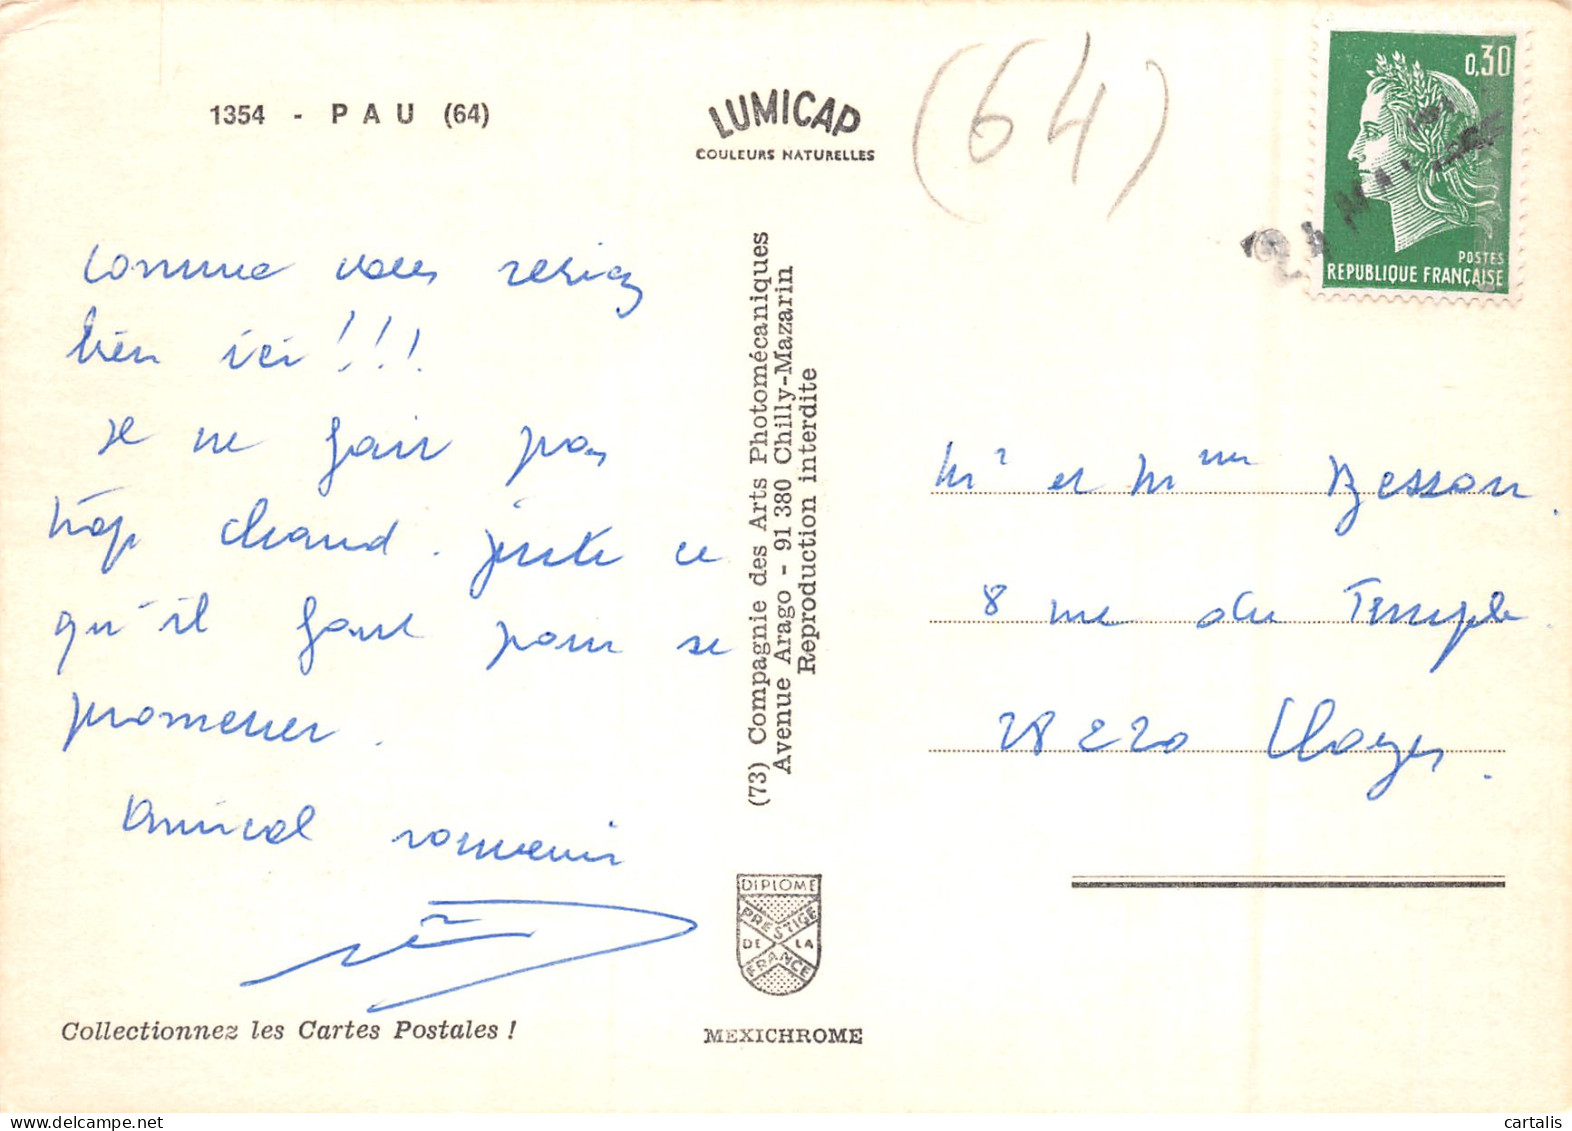 1354 - PAU (64)
LUMICAP
COULEURS NATURELLES
(64)
0,30
POSTES
REPUBLIQUE FRANÇAISE
comme vous seriez
bien ici !!!
Je ne fait pas
trop chaud. juste ce
qu'il faut pour se
promener.
Amical souvenir
(73) Compagnie des Arts Photomécaniques
Avenue Arago - 91 380 Chilly-Mazarin
Reproduction interdite
Mr et Mme Besson.
8 rue du Temple
28220 Cloyes.
DIPLÔME
PRESTIGE
DE LA
FRANCE
Collectionnez les Cartes Postales !
MEXICHROME
cartalis